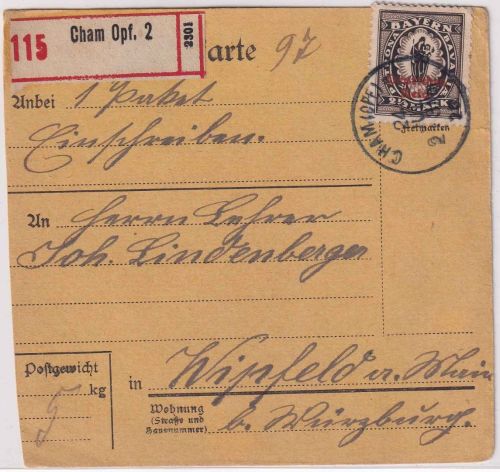 115 Cham Opf. 2 2301
arte 97
PATRONA BAVARIAE
2½ MARK
Freimarken
CHAM (OPF.) 2
Anbei 1 Paket
Einschreiben.
An Herrn Lehrer
Joh. Lindenberger
Postgewicht
5 kg
in Wipfeld a. Main
Wohnung
(Straße und
Hausnummer)
b. Würzburg.